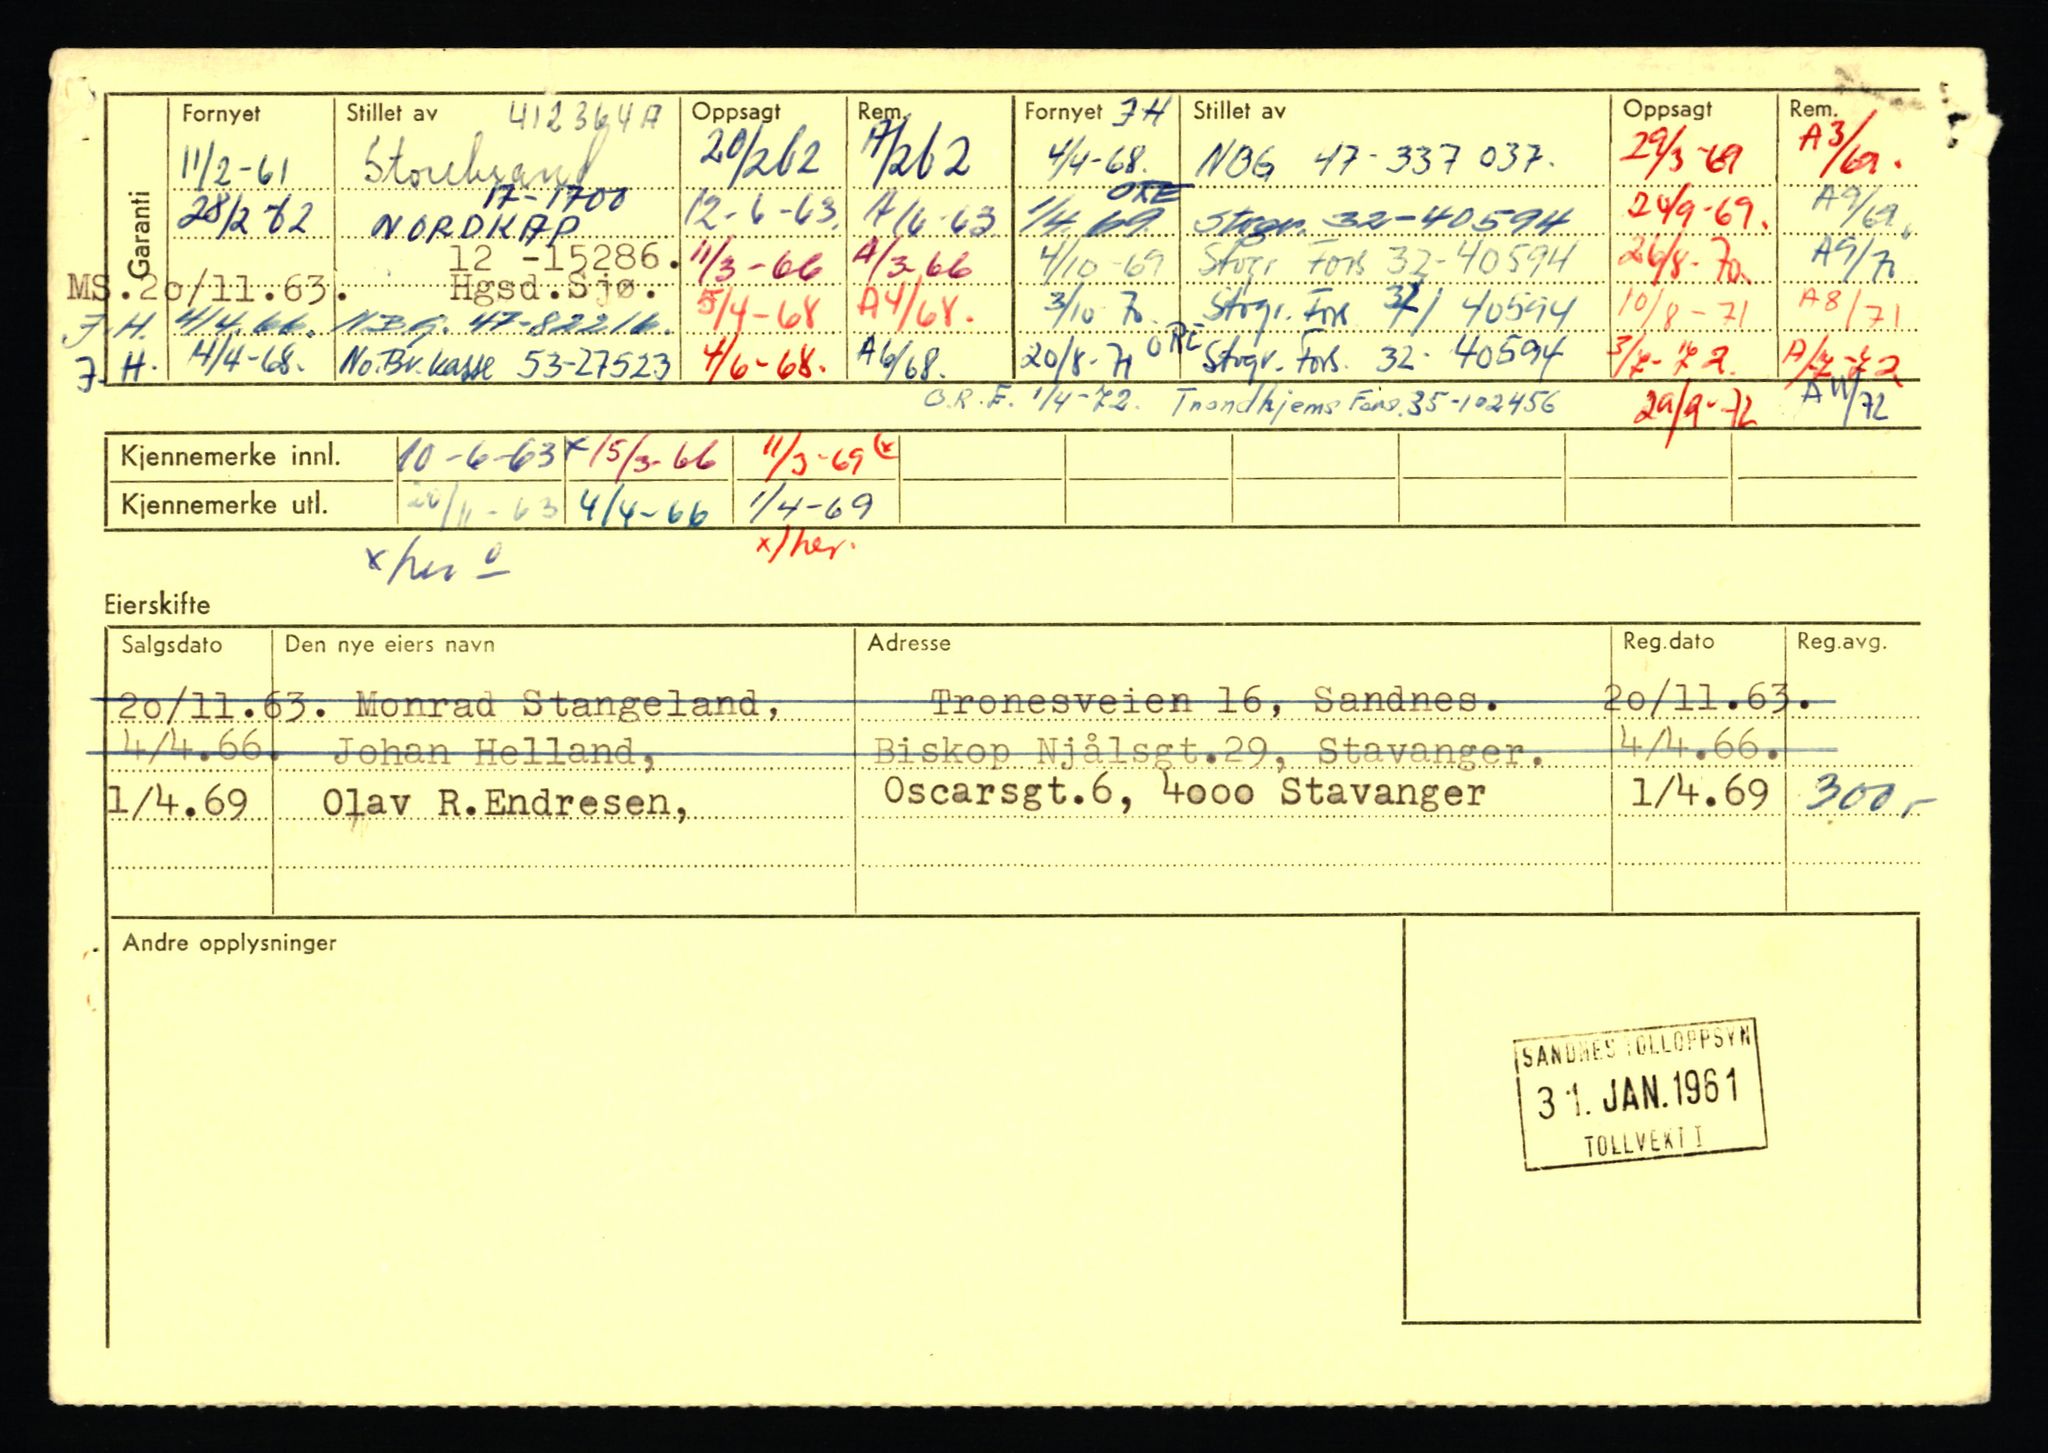 Garanti
Fornyet Stillet av 412364A Oppsagt Rem. Fornyet JH Stillet av Oppsagt Rem.
11/2-61 Storebrand 20/2 62 A/2 62 4/4-68. NBG 47-337 037. 29/3-69 A3/69.
28/2-62 17-1700 NORDKAP 12-6-63. A/6-63 ORE 1/4 69 Stvgr. 32-40594 24/9-69. A9/69.
12 -15286. 11/3-66 A/3-66 4/10-69 Stvgr. Fors 32-40594 26/8-70. A9/70
MS.2o/11.63. Hgsd.Sjø. 5/4-68 A4/68. 3/10 70. Stvgr. Fors 32/ 40594 10/8-71 A8/71
J.H. 4/4.66. N.B.G. 47-82216.
J.H. 4/4-68. No.Br.kasse 53-27523 4/6-68. A6/68. 20/8-71 ORE Stvgr. Fors. 32-40594
O.R.E. 1/4-72. Trondhjems Fors. 35-102456 29/9-72 A11/72
Kjennemerke innl. 10-6-63 x 15/3-66 11/3-69 (x
Kjennemerke utl. 20/11-63 4/4-66 1/4-69
x/her x)her.
Eierskifte
Salgsdato Den nye eiers navn Adresse Reg.dato Reg.avg.
2o/11.63. Monrad Stangeland, Tronesveien 16, Sandnes. 2o/11.63.
4/4.66. Johan Helland, Biskop Njålsgt.29, Stavanger. 4/4.66.
1/4.69 Olav R.Endresen, Oscarsgt.6, 4ooo Stavanger 1/4.69 300,-
Andre opplysninger
SANDNES TOLLOPPSYN
31. JAN. 1961
TOLLVEKT I